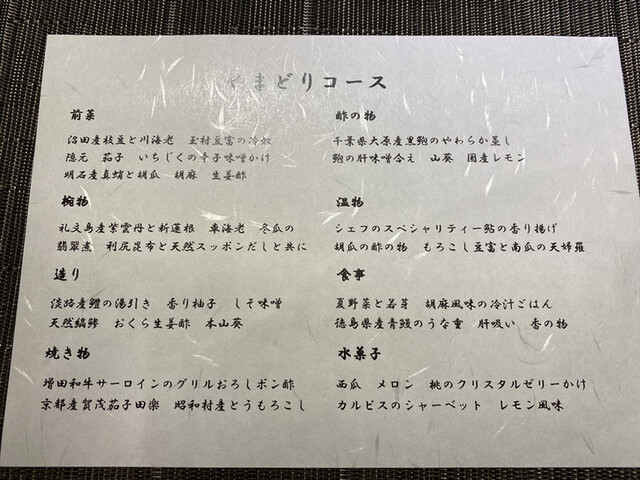 やまどりコース
前菜
沼田産枝豆と川海老　玉村豆富の冷奴
隠元　茄子　いちじくの辛子味噌かけ
明石産真蛸と胡瓜　胡麻　生姜酢
椀物
礼文島産紫雲丹と新蓮根　車海老　冬瓜の
翡翠煮　利尻昆布と天然スッポンだしと共に
造り
淡路産鱧の湯引き　香り柚子　しそ味噌
天然縞鯵　おくら生姜酢　本山葵
焼き物
増田和牛サーロインのグリルおろしポン酢
京都産賀茂茄子田楽　昭和村産とうもろこし
酢の物
千葉県大原産黒鮑のやわらか蒸し
鮑の肝味噌合え　山葵　国産レモン
温物
シェフのスペシャリティー鮎の香り揚げ
胡瓜の酢の物　もろこし豆富と南瓜の天婦羅
食事
夏野菜と若芽　胡麻風味の冷汁ごはん
徳島県産青鰻のうな重　肝吸い　香の物
水菓子
西瓜　メロン　桃のクリスタルゼリーかけ
カルピスのシャーベット　レモン風味